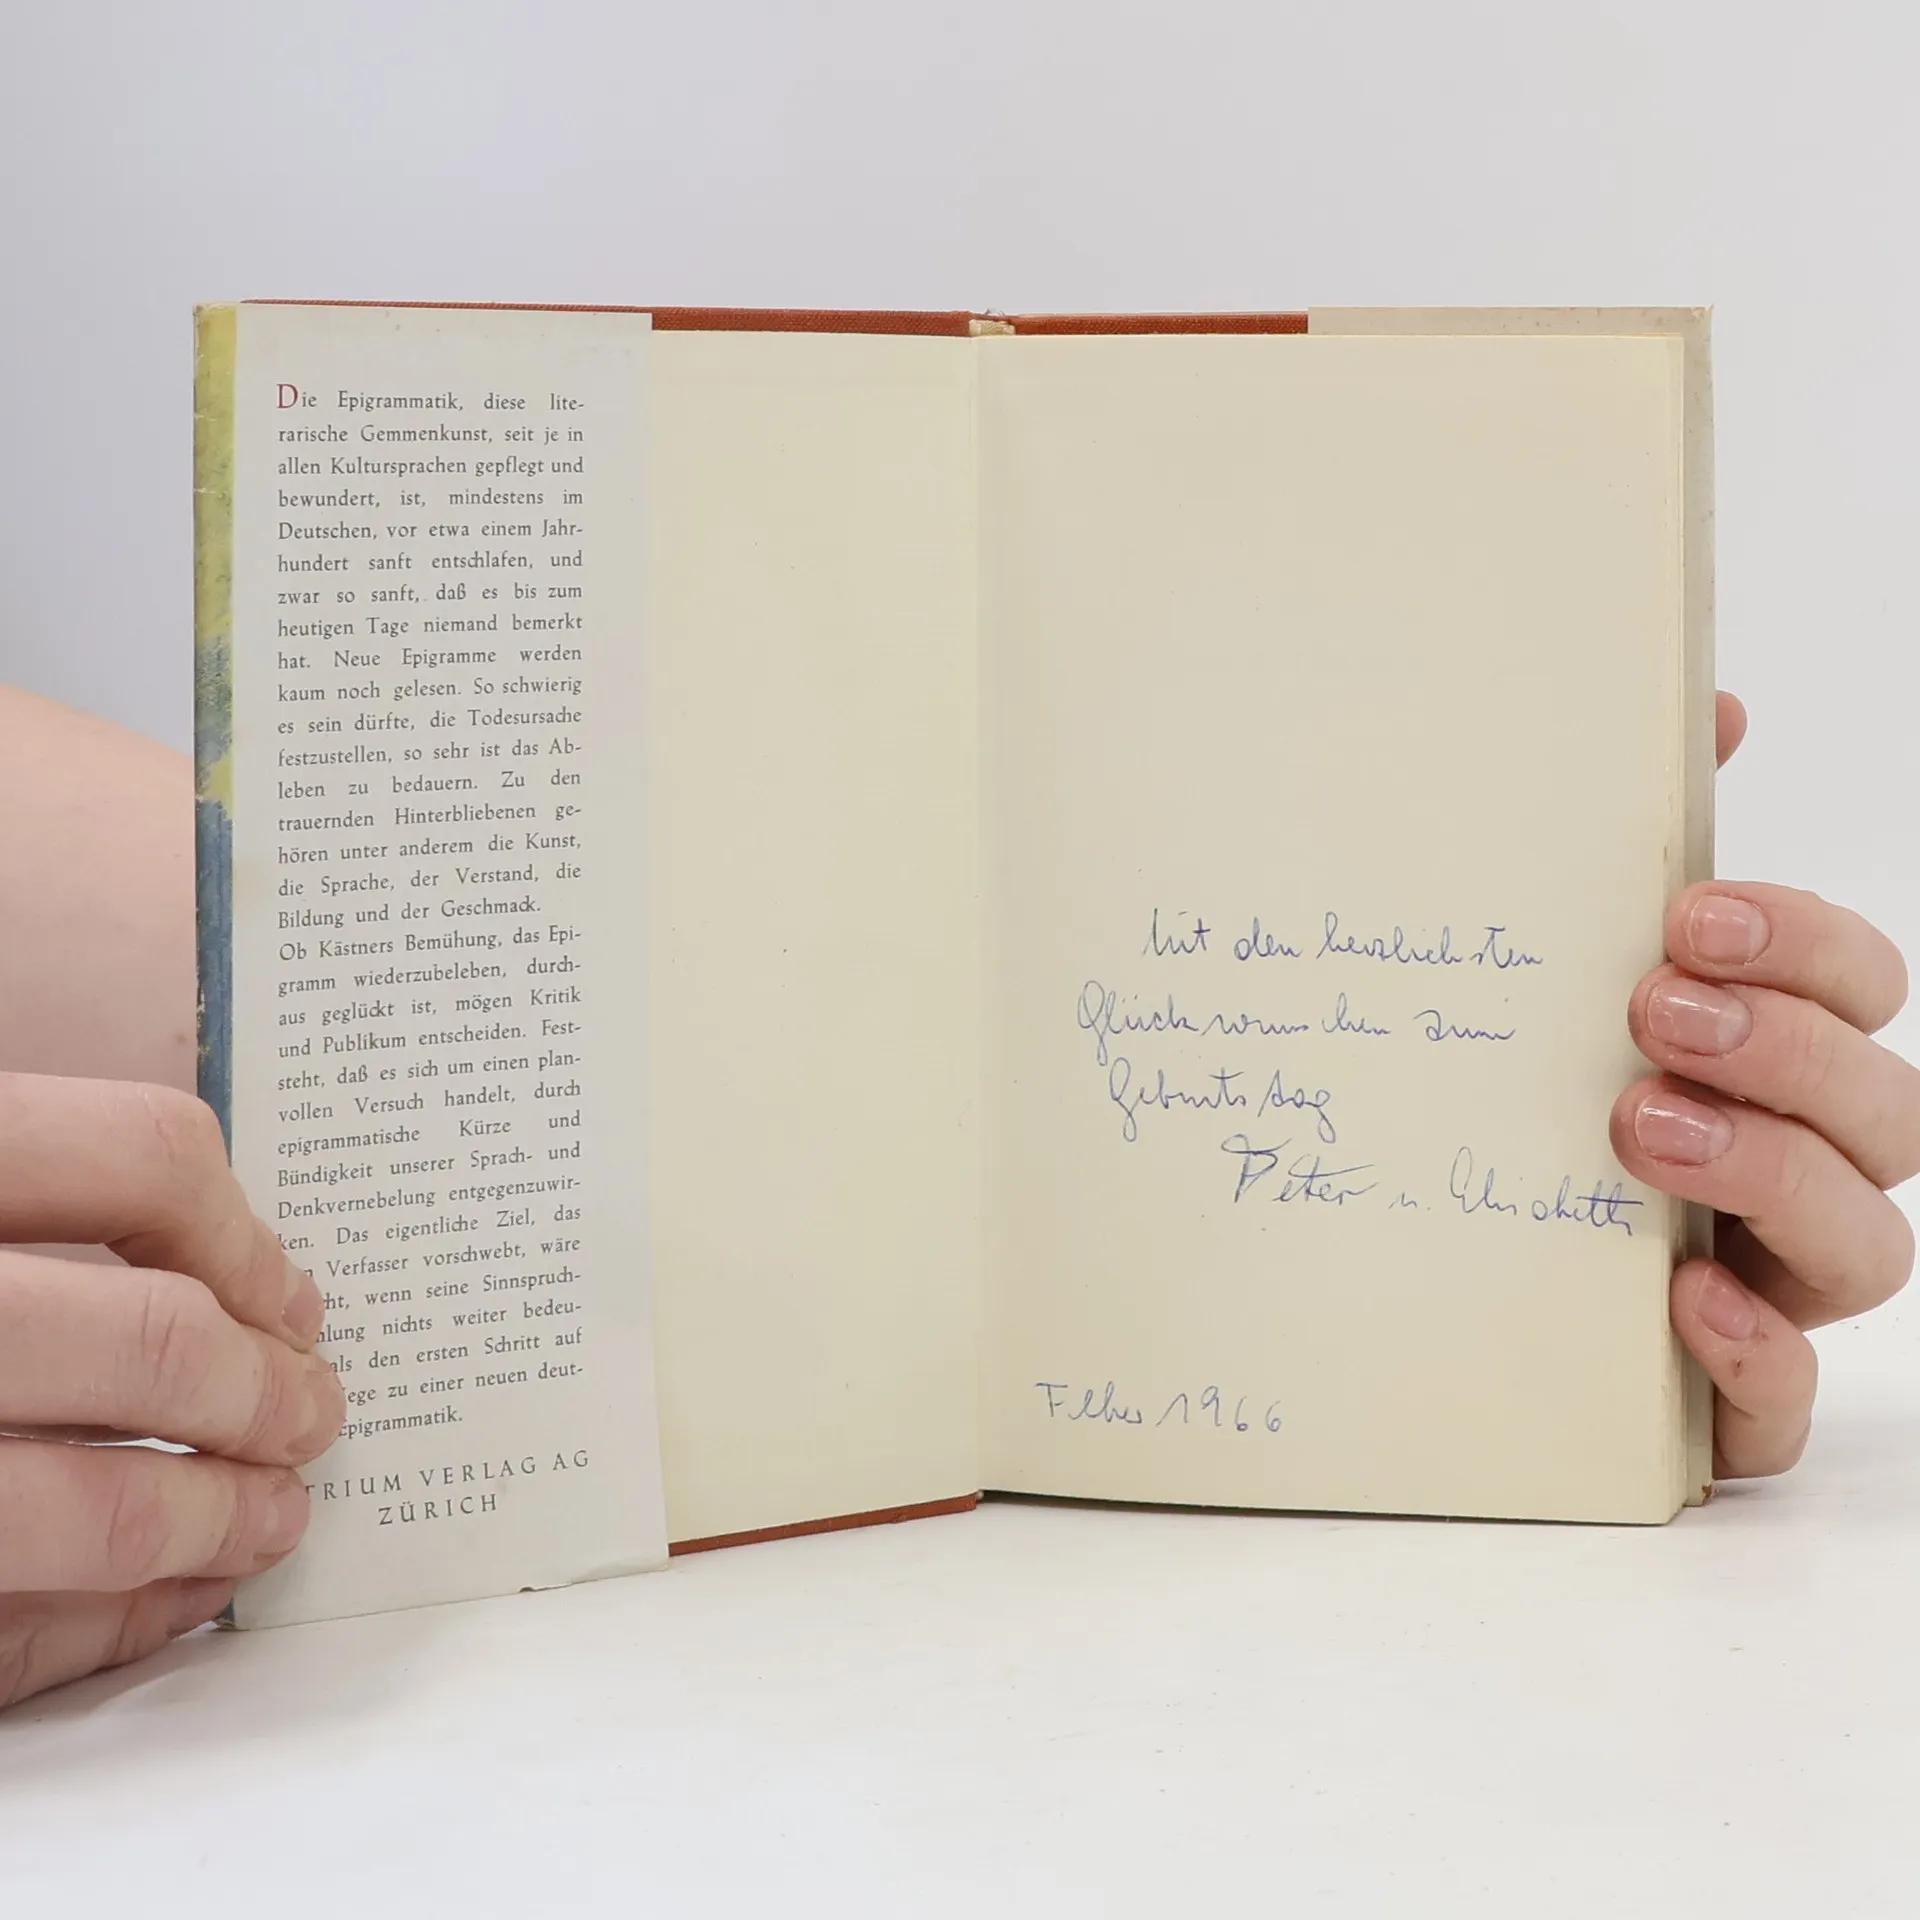 Die Epigrammatik, diese lite-
rarische Gemmenkunst, seit je in
allen Kultursprachen gepflegt und
bewundert, ist, mindestens im
Deutschen, vor etwa einem Jahr-
hundert sanft entschlafen, und
zwar so sanft, daß es bis zum
heutigen Tage niemand bemerkt
hat. Neue Epigramme werden
kaum noch gelesen. So schwierig
es sein dürfte, die Todesursache
festzustellen, so sehr ist das Ab-
leben zu bedauern. Zu den
trauernden Hinterbliebenen ge-
hören unter anderem die Kunst,
die Sprache, der Verstand, die
Bildung und der Geschmack.
Ob Kästners Bemühung, das Epi-
gramm wiederzubeleben, durch-
aus geglückt ist, mögen Kritik
und Publikum entscheiden. Fest-
steht, daß es sich um einen plan-
vollen Versuch handelt, durch
epigrammatische Kürze und
Bündigkeit unserer Sprach- und
Denkvernebelung entgegenzuwir-
ken. Das eigentliche Ziel, das
Verfasser vorschwebt, wäre
wenn seine Sinnspruch-
nichts weiter bedeu-
als den ersten Schritt auf
zu einer neuen deut-
Epigrammatik.
TRIUM VERLAG AG
ZÜRICH
Mit den herzlichsten
Glückwünschen zum
Geburtstag
Peter u. Elisabeth
1966